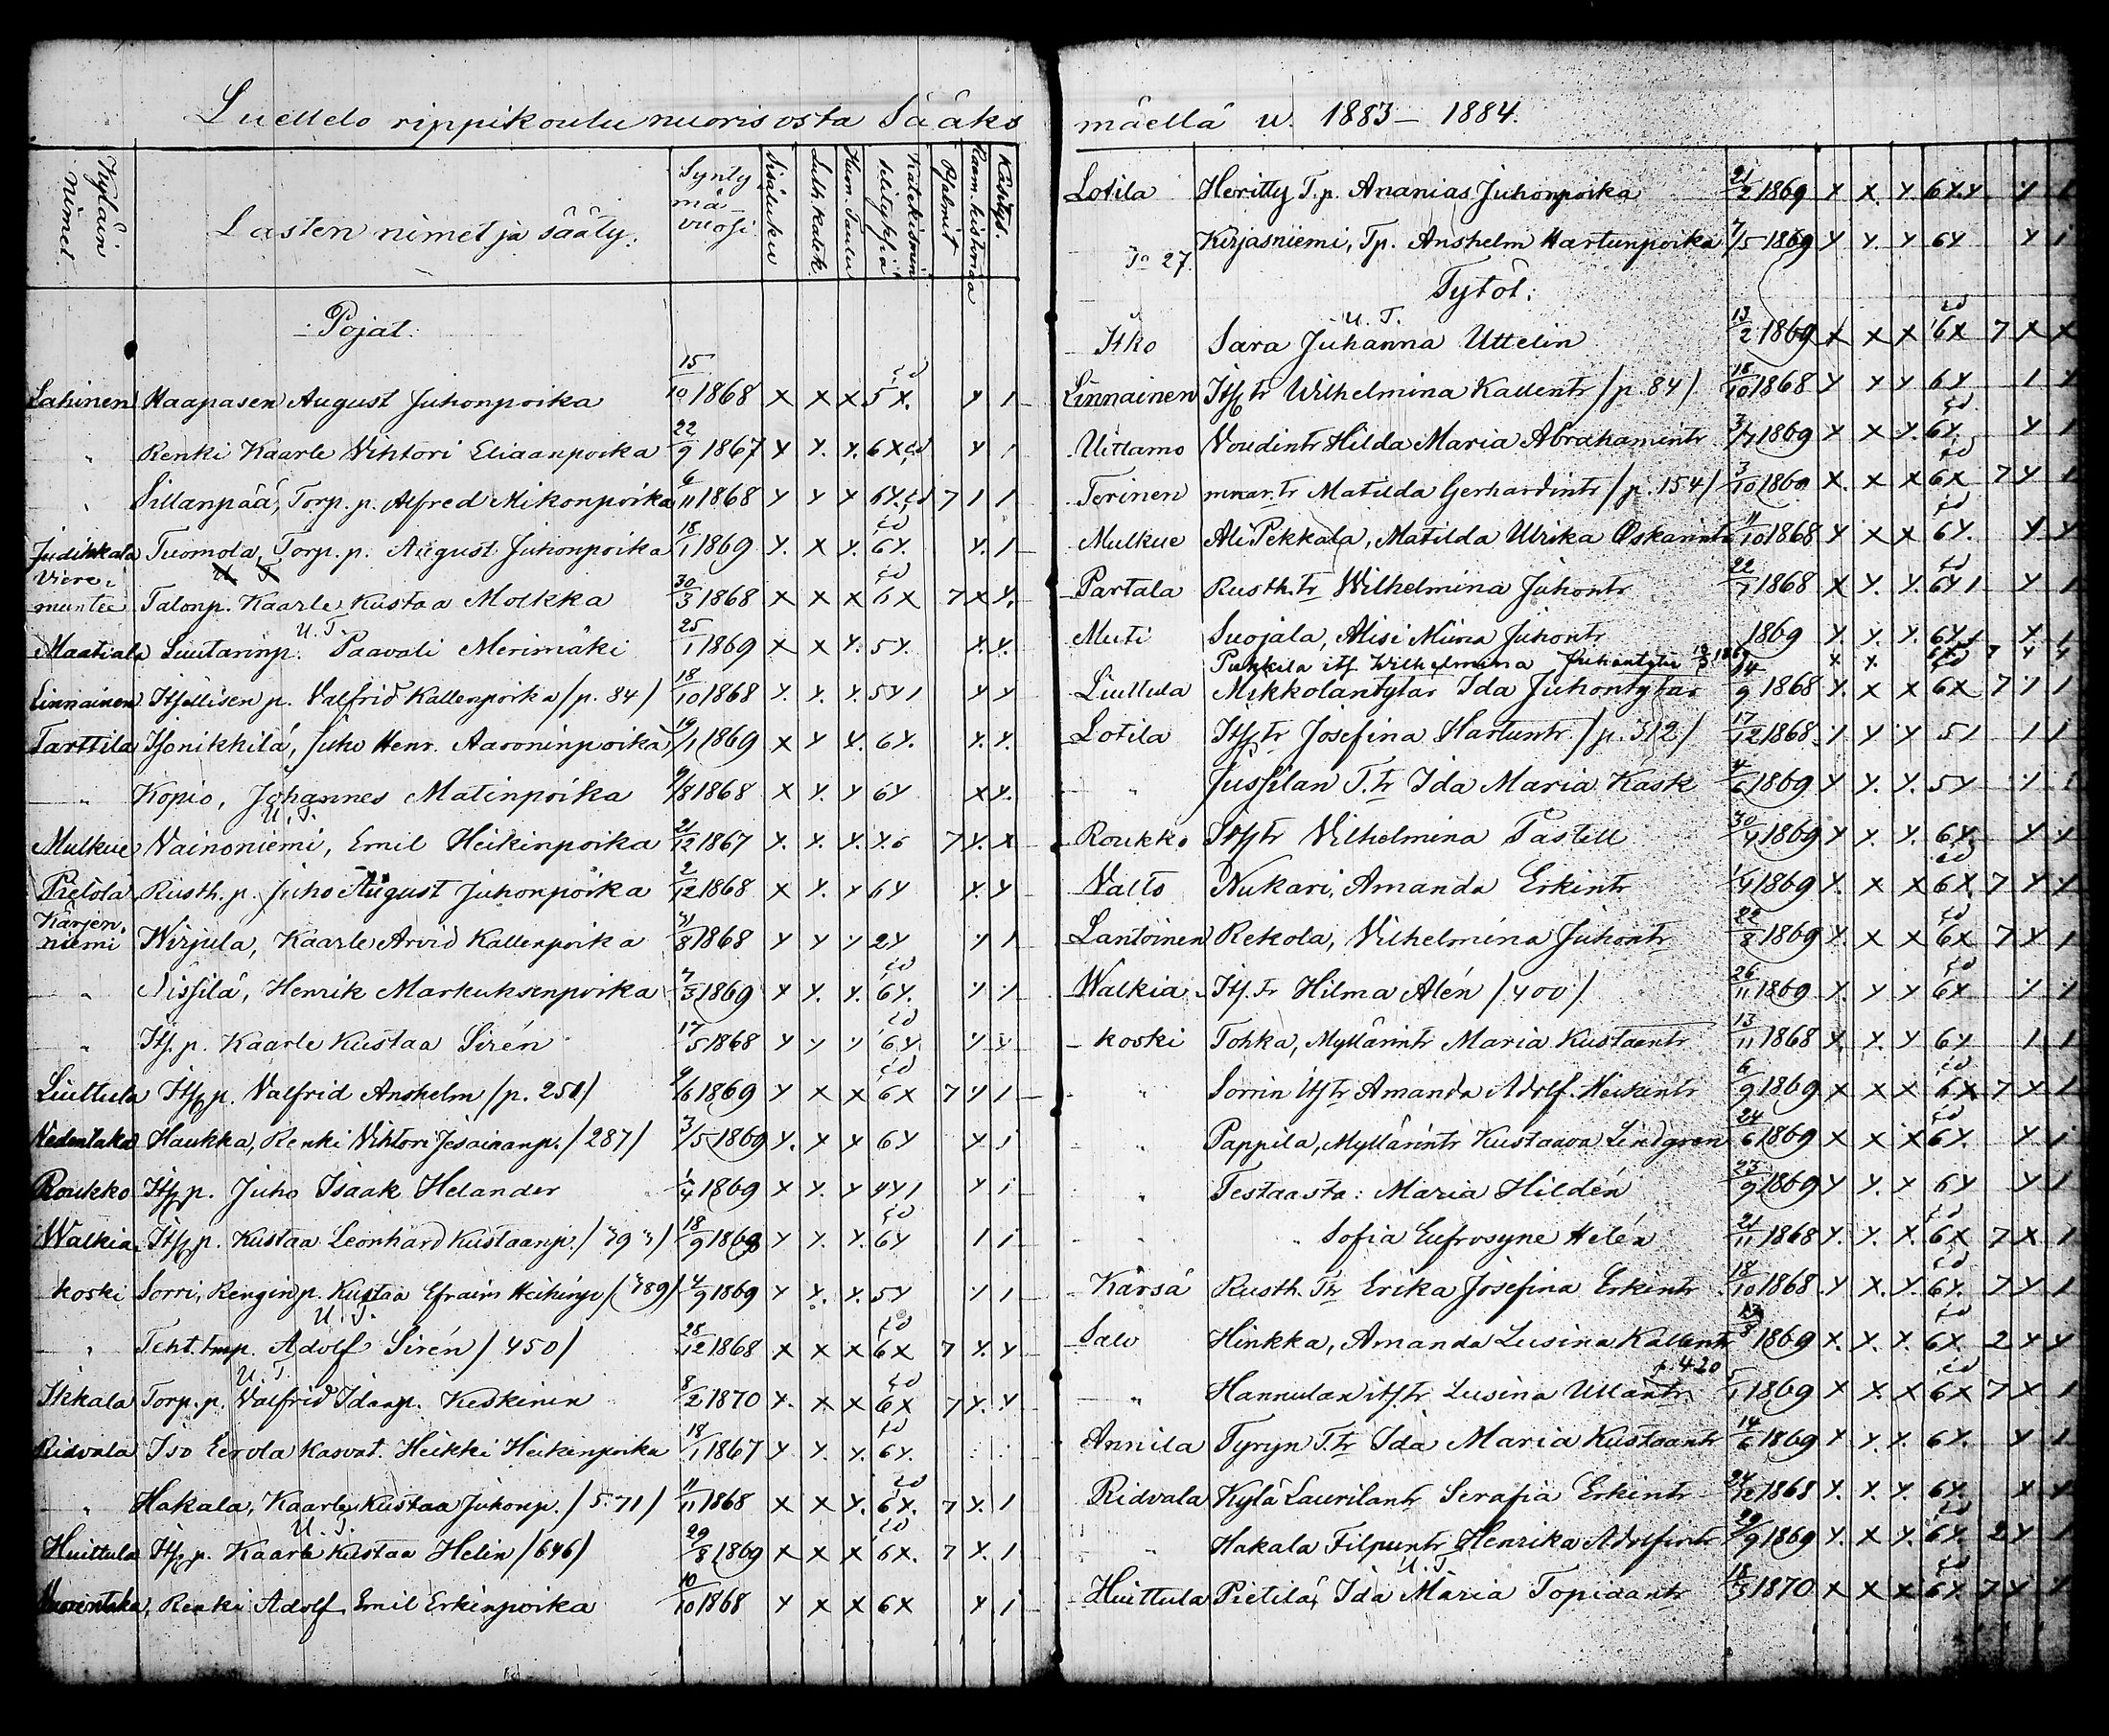 Luettelo rippikoulunuorisosta Sääks
Kyläin nimet. Lasten nimet ja sääty. Syntymä-vuosi Sisäluku Luth. Katek. Huon. Taulu Katekismus selityksiä Psalmit Raam. historia Käsitys.
Pojat.
Lahinen Haapasen August Juhonpoika 15/10 1868 x x x 5x. x 1
" Renki Kaarle Vihtori Eliaanpoika 22/9 1867 x x. x. 6x x 1
" Sillanpää, Torp. p. Alfred Mikonpoika 6/11 1868 x x x 6x. 7 1 1
Judikkala Tuomola, Torp. p. August Juhonpoika 18/1 1869 x. x x. 6x. x. 1
U T
Vieremuntee Talonp. Kaarle Kustaa Molkka 30/3 1868 x x x 6x 7 x x.
U. T.
Maatiala Suutarinp. Paavali Merimäki 25/1 1869 x x x. 5x. x. x.
Linnainen Itsellisen p. Valfrid Kallenpoika /p. 84/ 18/10 1868 x. x. x. 5x1 x x
Tarttila Isonikkilä, Juho Henr. Aaroninpoika 19/1 1869 x x x. 6x. x. x.
" Kopio, Johannes Matinpoika 9/8 1868 x x. x 6x x x.
U. T.
Mulkue Vainoniemi, Emil Heikinpoika 21/12 1867 x. x. x. x.6 7 x. x
Pietola Rusth. p. Juho August Juhonpoika 2/12 1868 x x. x 6x x. x
Kärjenniemi Wirjula, Kaarle Arvid Kallenpoika 31/8 1868 x x x 2x x 1
" Nissilä, Henrik Markuksenpoika 7/3 1869 x x. x. 6x. x 1
" Its. p. Kaarle Kustaa Sirén 17/5 1868 x x x 6x. x x
Liuttula Its. p. Valfrid Anshelm /p. 251/ 9/6 1869 x x x 6x 7 x 1
Haukka, Renki Vihtori Jesaiaanp. /287/ 3/5 1869 x. x x 6x x 1
Roukko Its. p. Juho Isaak Helander 1/4 1869 x x. x 4x1 x 1
Walkia- Its. p. Kustaa Leonhard Kustaanp. 18/9 1868 x x. x. 6x 1 1
koski Sorri, Rengin p. Kustaa Efraim Heikinp. /389/ 4/9 1869 x x. x. 5x x 1
U. T.
" Teht. tmp. Adolf Sirén /450/ 28/12 1868 x x x 6x 7 x. x
U. T.
Ikkala Torp. p. Valfrid Idanp. Keskinen 8/2 1870 x. x x 6x 7 x. x
Ridvala Iso Eerola Kasvat. Heikki Heikinpoika 18/1 1867 x x. x. 6x.
" Hakala, Kaarle Kustaa Juhonp. /571/ 11/11 1868 x x x. 6x. 7 x. 1
U. T.
Huittula Its. p. Kaarle Kustaa Helin /646/ 29/8 1869 x x x 6x. 7 x. 1
Renki Adolf Emil Erkinpoika 10/10 1868 x x x 6x x 1
mäellä w. 1883– 1884.
Lotila Heritty T. p. Ananias Juhonpoika 21/2 1869 x x. x. 6xx x 1
Kirjasniemi, Tp. Anshelm Hartunpoika 7/5 1869 x x. x 6x x 1
27.
Tytöt:
U. T.
Itko Sara Juhanna Uttelin 13/2 1869 x x x 6x 7 x x
Linnainen Its. tr Wilhelmina Kallentr /p. 84/ 18/10 1868 x x x. 6x 1 x
Uittamo Voudintr Hilda Maria Abrahamintr 3/7 1869 x x x. 6x. x 1
Terinen Matilda Gerhardintr /p. 154/ 3/10 1869 x. x. x 6x 7 x 1
Mulkue Ali Pekkala, Matilda Ulrika Oskarintr 11/10 1868 x x x 6x. x x
Partala Rusth. tr Wilhelmina Juhontr 22/7 1868 x x. x. 6x1 x 1
Muti Suojala, Alisi Miina Juhontr 1869 x. x. x. 6x x 1
Pukkila its. Wilhelmina Juhontytär x x. 6x 7 x x
Liuttula Mikkolantytär Ida Juhontytär 14/9 1868 x. x x 6x 7 x 1
Lotila Its. tr Josefina Hartuntr. /p. 312/ 17/12 1868 x x x 51 1 1
" Jussilan T. tr Ida Maria Kask 4/6 1869 x x. x. 5x x 1
Roukko Its. tr Vilhelmina Pastell 30/4 1869 x x. x. 6x. x x
Valto Nukari, Amanda Erkintr 1/4 1869 x. x x 6x. 7 x x
Lantoinen Rekola, Vilhelmina Juhontr 22/8 1869 x. x x 6x 7 x 1
Walkia- Its. Tr Hilma Alén /400/ 26/11 1869 x. x x 6x x x
koski Tohka, Myllärintr Maria Kustaantr 13/11 1868 x. x. x 6x 1 1
" Sorrin its tr Amanda Adolf. Heikintr 6/9 1869 x x x 6x 7 x 1
" Pappila, Myllärintr Kustaava Lindgren 24/6 1869 x x x 6x. x 1
" Testaasta: Maria Hildén 23/9 1869 x x. x 6x x 1
" " Sofia Eufrosyne Helén 21/11 1868 x. x. x. 6x 7 x 1
Kärsä Rusth. Tr Erika Josefina Erkintr 18/10 1868 x x. x. 6x. 7 x 1
Salo Hinkka, Amanda Lusina Kallentr 1869 x. x. x. 6x. 2 x x
p. 420
" Hannulan its. tr Lusina Ullantr. 5/1 1869 x x. x 6x 7 x 1
Annila Tyryn T. tr Ida Maria Kustaantr 14/6 1869 x x x. 6x. x 1
Ridvala Kylä Laurilantr Serafia Erkintr 24/12 1868 x. x. x. 6x. x x
" Hakala Filpuntr Henrika Adolfintr 29/9 1869 x. x x. 6x. 2 x 1
U. T.
Huittula Pietilä, Ida Maria Topiaantr 18/3 1870 x x x 6x. 7 x x